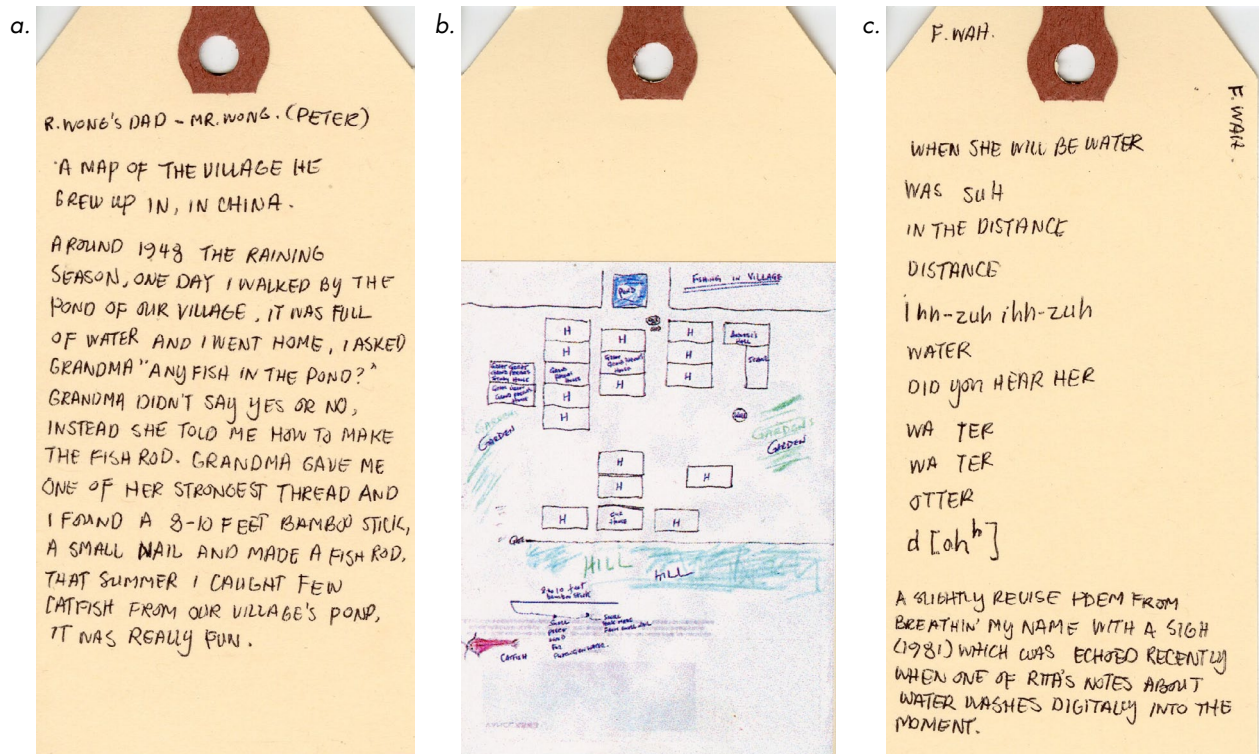 a.
R. WONG'S DAD - MR. WONG. (PETER)
A MAP OF THE VILLAGE HE
GREW UP IN, IN CHINA.
AROUND 1948 THE RAINING
SEASON, ONE DAY I WALKED BY THE
POND OF OUR VILLAGE, IT WAS FULL
OF WATER AND I WENT HOME, I ASKED
GRANDMA "ANY FISH IN THE POND?"
GRANDMA DIDN'T SAY YES OR NO,
INSTEAD SHE TOLD ME HOW TO MAKE
THE FISH ROD. GRANDMA GAVE ME
ONE OF HER STRONGEST THREAD AND
I FOUND A 8-10 FEET BAMBOO STICK,
A SMALL NAIL AND MADE A FISH ROD.
THAT SUMMER I CAUGHT FEW
CATFISH FROM OUR VILLAGE'S POND,
IT WAS REALLY FUN.
b.
FISHING IN VILLAGE
POND
H
H
H
H
H
H
H
H
H
GRAND
HOUSE
GREAT
HOUSE
SCHOOL
GARDEN
GARDEN
GARDENS
GARDEN
H
H
H
H
OUR
HOUSE
H
HILL
HILL
8 to 10 feet
bamboo stick
SMALL
FOR
CATFISH
c.
F. WAH.
F. WAH.
WHEN SHE WILL BE WATER
WAS SUH
IN THE DISTANCE
DISTANCE
ihh-zuh ihh-zuh
WATER
DID YOU HEAR HER
WA TER
WA TER
OTTER
d [ah ʰ]
A SLIGHTLY REVISE POEM FROM
BREATHIN' MY NAME WITH A SIGH
(1981) WHICH WAS ECHOED RECENTLY
WHEN ONE OF RITA'S NOTES ABOUT
WATER WASHES DIGITALLY INTO THE
MOMENT.